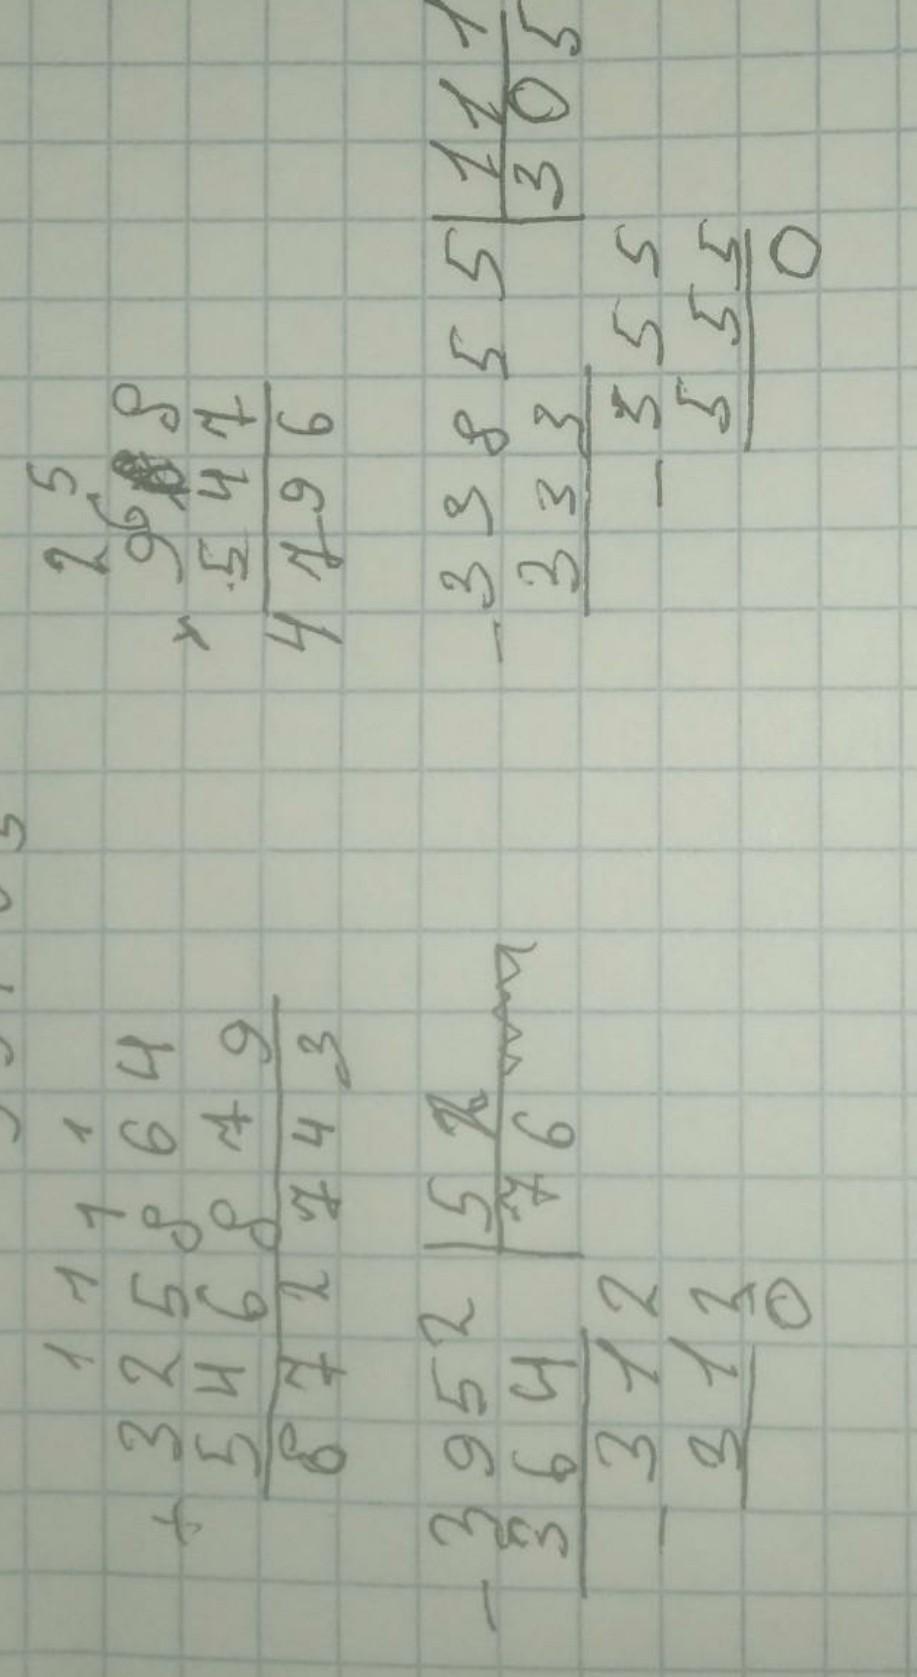 1 1 1 1
3 2 5 8 6 4
+
5 4 6 8 7 9
8 7 2 7 4 3
2 5
9 6 8
×
5 4 7
4 7 9 6
− 3 9 5 2 | 5 2
3 6 4 | 7 6
− 3 1 2
3 1 2
0
− 3 3 8 5 5 | 1 1 1
3 3 3 | 3 0 5
− 5 5 5
5 5 5
0